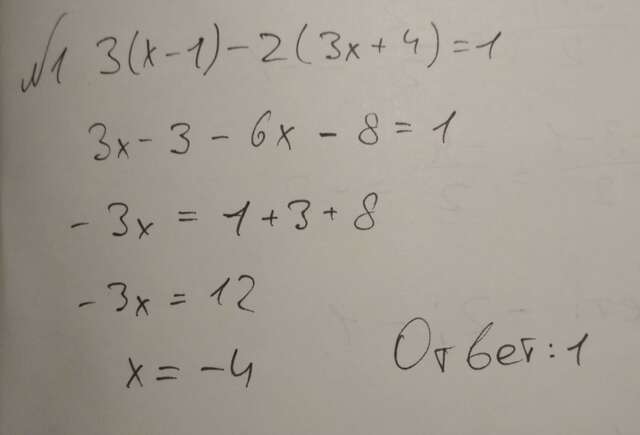 №1 3(x-1)-2(3x+4)=1
3x-3-6x-8=1
-3x=1+3+8
-3x=12
x=-4
Ответ:1